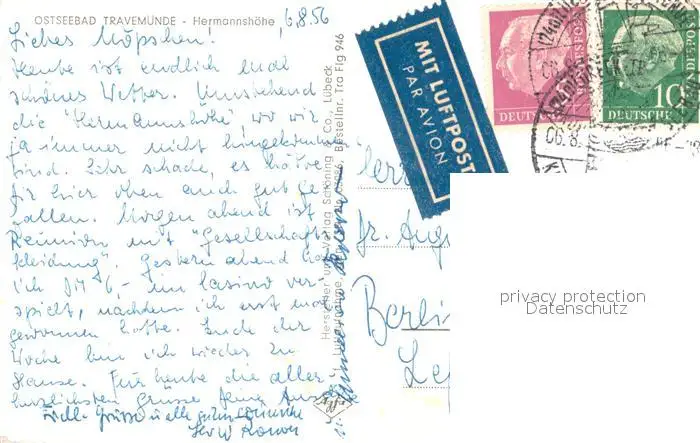 OSTSEEBAD TRAVEMÜNDE - Hermannshöhe
6.8.56
Liebes Möpschen!
Heute ist endlich mal
schönes Wetter. Umstehend
die "Hermannshöhe" wo wir
ja immer nicht hingekommen
sind. Sehr schade, es hätte
Dir hier oben auch gut ge-
fallen. Morgen abend ist
Reunion mit "Gesellschafts-
kleidung". Gestern abend
ich DM 6,- im Casino ver-
spielt, nachdem ich erst mal
gewonnen hatte. Ende der
Woche bin ich wieder zu
Hause. Für heute die aller-
herzlichsten Grüsse Deine
Viele Grüsse u. alle guten Wünsche
Hersteller und Verlag Schöning & Co., Lübeck
Bestellnr. Tra Flg 946
MIT LUFTPOST
PAR AVION
DEUTSCHE BUNDESPOST
10
DEUTSCHE
06.8.
Herr
Fr. Aug
Berlin
privacy protection
Datenschutz